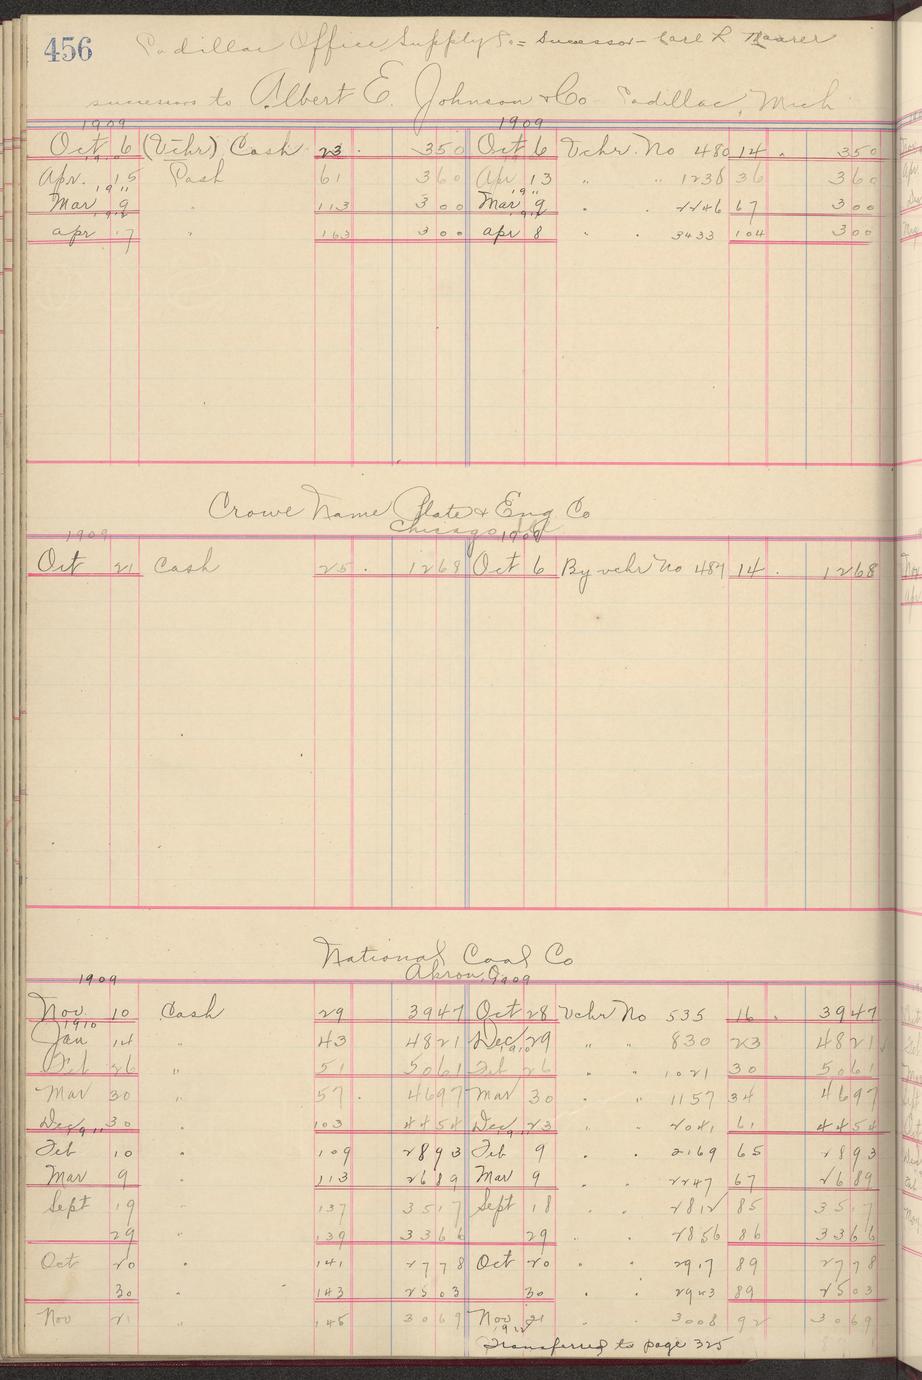 456
Cadillac Office Supply Co = Successor - Carl R Maurer
successors to Albert E. Johnson & Co Cadillac, Mich
1909 1909
Oct 6 (Vchr) Cash 23 . 350 Oct 6 Vchr. No 480 14 . 350
1910
Apr. 15 Cash 61 360 Apr 13 " " 1238 36 360
1911 1911
Mar 9 " 113 300 Mar 9 " " 2246 67 300
1912 1912
Apr 17 " 163 300 Apr 8 " " 3433 104 300
Crowe Name Plate & Eng Co
Chicago Ill
1909 1909
Oct 21 Cash 25 . 1268 Oct 6 By vchr No 487 14 . 1268
National Coal Co
Akron, O
1909 1909
Nov. 10 Cash 29 3947 Oct 28 Vchr No 535 16 . 3947
1910
Jan 14 " 43 4821 Dec 29 " " 830 23 4821
1910
Feb 26 " 51 5061 Feb 26 " " 1021 30 5061
Mar 30 " 57 . 4697 Mar 30 " " 1157 34 4697
Dec 30 " 103 4454 Dec 23 " " 2041 61 4454
1911 1911
Feb 10 " 109 2893 Feb 9 " " 2169 65 2893
Mar 9 " 113 2689 Mar 9 " " 2247 67 2689
Sept 19 " 137 3517 Sept 18 " " 2812 85 3517
29 " 139 3366 29 " " 2856 86 3366
Oct 20 " 141 2778 Oct 20 " " 2917 89 2778
30 " 143 2503 30 " " 2943 89 2503
Nov 21 " 145 3069 Nov 21 " " 3008 92 3069
1912
Transferred to page 325